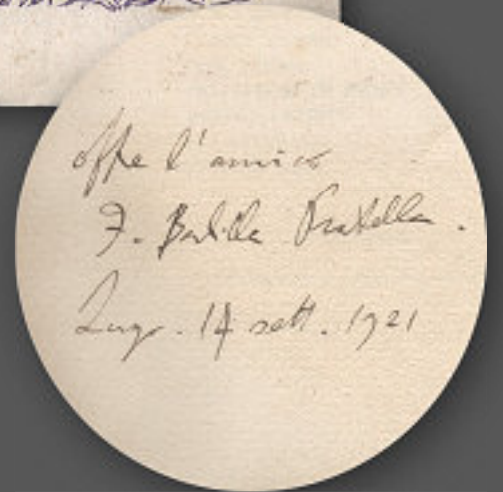 offre l'amico
F. Balilla Pratella.
Lugo. 14 sett. 1921